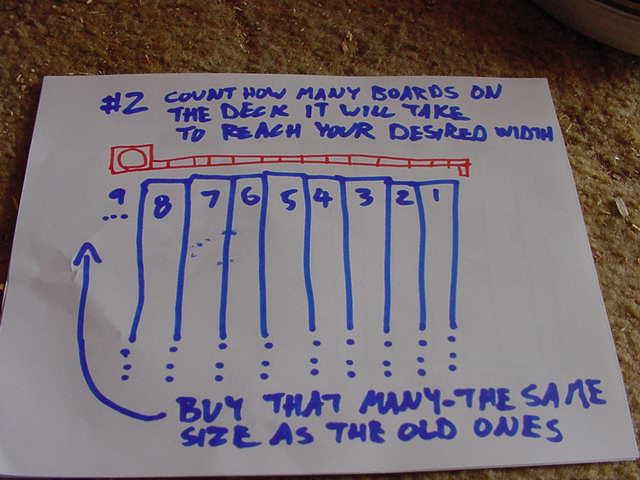 #2 COUNT HOW MANY BOARDS ON
THE DECK IT WILL TAKE
TO REACH YOUR DESIRED WIDTH
9 8 7 6 5 4 3 2 1
...
BUY THAT MANY-THE SAME
SIZE AS THE OLD ONES